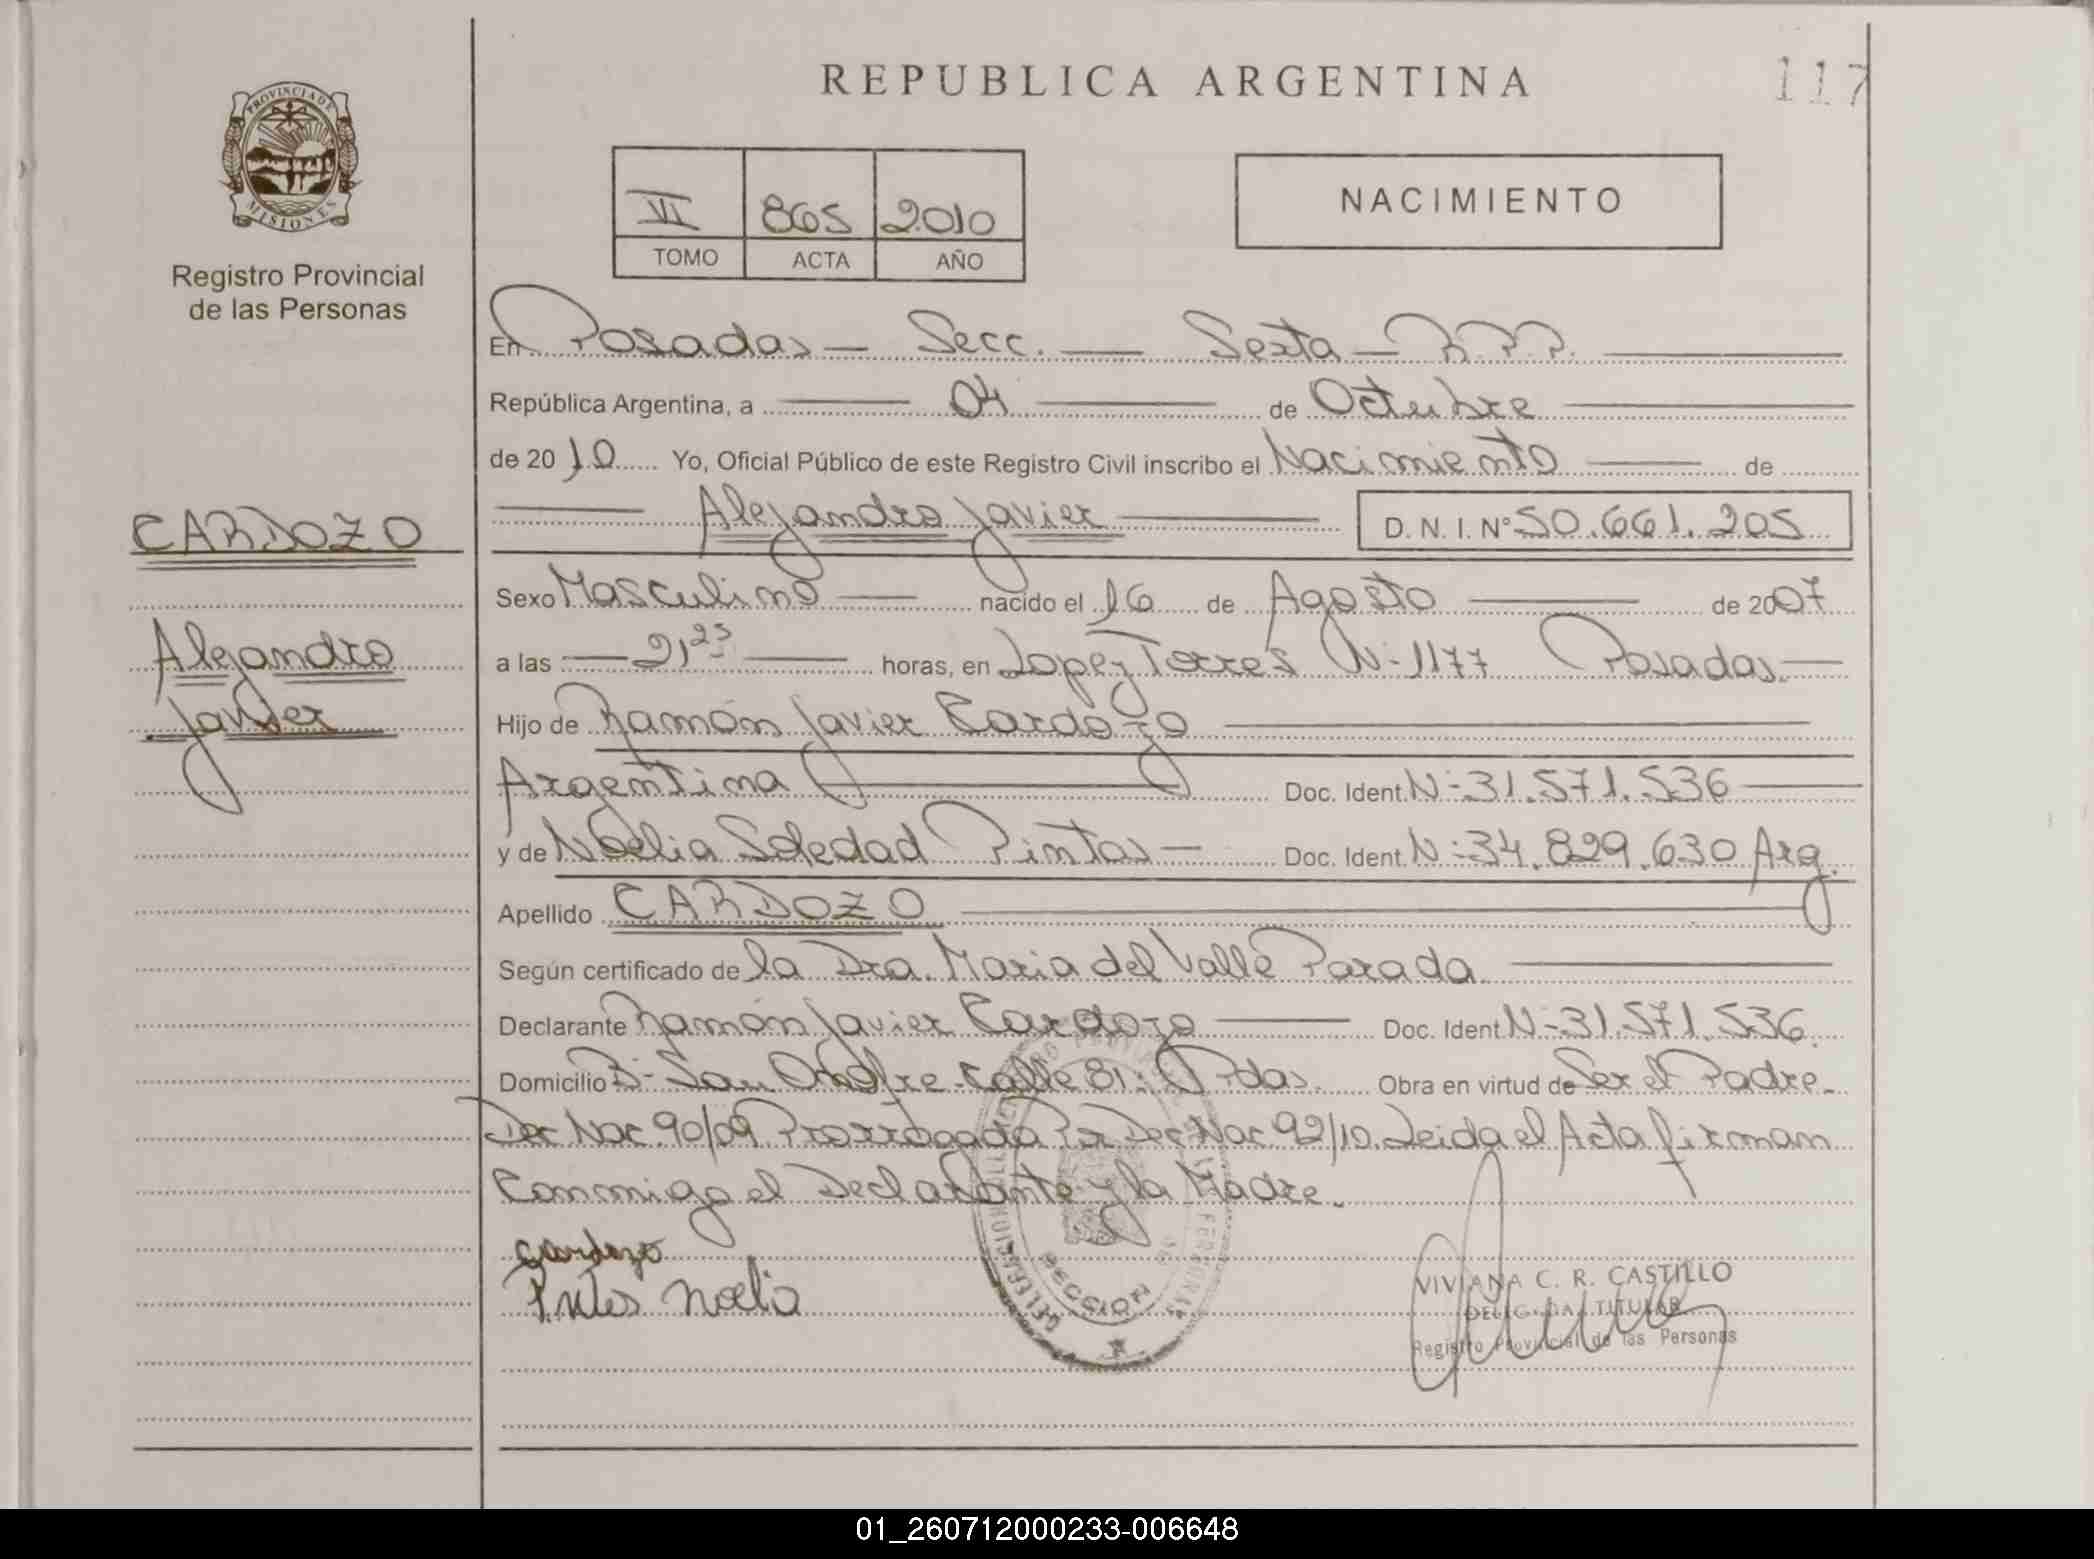 REPUBLICA ARGENTINA
117
PROVINCIA DE
MISIONES
Registro Provincial
de las Personas
VI 865 2010
TOMO ACTA AÑO
NACIMIENTO
En Posadas — Secc. — Sexta — R.P.P.
República Argentina, a 04 de Octubre
de 2010 Yo, Oficial Público de este Registro Civil inscribo el Nacimiento de
Alejandro Javier D. N. I. N° 50.661.205
CARDOZO
Alejandro
Javier
Sexo Masculino nacido el 16 de Agosto de 2007
a las 21,25 horas, en Lopez Torres N: 1177 Posadas.
Hijo de Ramón Javier Cardozo
Argentina Doc. Ident. N: 31.571.536
y de Noelia Soledad Pintos Doc. Ident. N: 34.829.630 Arg.
Apellido CARDOZO
Según certificado de la Dra. Maria del Valle Parada
Declarante Ramón Javier Cardozo Doc. Ident N: 31.571.536.
Domicilio B: San Onofre Calle 81: Pdas. Obra en virtud de Ser el Padre.
Dec Nac. 90/09 Prorrogado Por Dec Nac 92/10. Leida el Acta firman
Conmigo el Declarante y la Madre.
cardozo
Pintos Noelia
SECCION
VIVIANA C. R. CASTILLO
DELEGADA TITULAR
Registro Provincial de las Personas
01_260712000233-006648